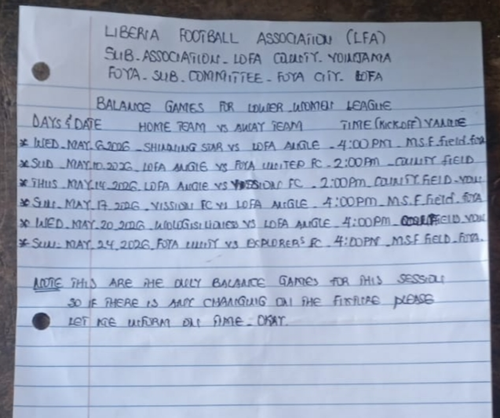 LIBERIA FOOTBALL ASSOCIATION (LFA)
SUB-ASSOCIATION - LOFA COUNTY. VOINJAMA
FOYA - SUB - COMMITTEE - FOYA CITY. LOFA
BALANCE GAMES FOR LOWER WOMEN LEAGUE
DAYS & DATE HOME TEAM VS AWAY TEAM TIME (KICKOFF) VANUE
* WED. MAY. 6. 2026 - SHINNING STAR VS LOFA ANGLE - 4:00 PM - M.S.F. field. foya
* SUN. MAY. 10. 2026. LOFA ANGLE VS FOYA UNITED FC - 2:00 PM - COUNTY FIELD
* THUS. MAY. 14. 2026. LOFA ANGLE VS VISSION FC - 2:00 PM. COUNTY FIELD. VOIN
* SUN. MAY. 17. 2026 - VISSION FC VS LOFA ANGLE - 4:00 PM - M.S.F. field. foya
* WED. MAY. 20. 2026 - VS LOFA ANGLE - 4:00 PM - field. VOIN
* SUN. MAY. 24. 2026. FOYA UNITY VS EXPLORERS FC - 4:00 PM - M.S.F. field. foya.
NOTE THIS ARE THE ONLY BALANCE GAMES FOR THIS SESSION
SO IF THERE IS ANY CHANGING ON THE FIXTURE PLEASE
LET ME INFORM ON TIME - OKAY.